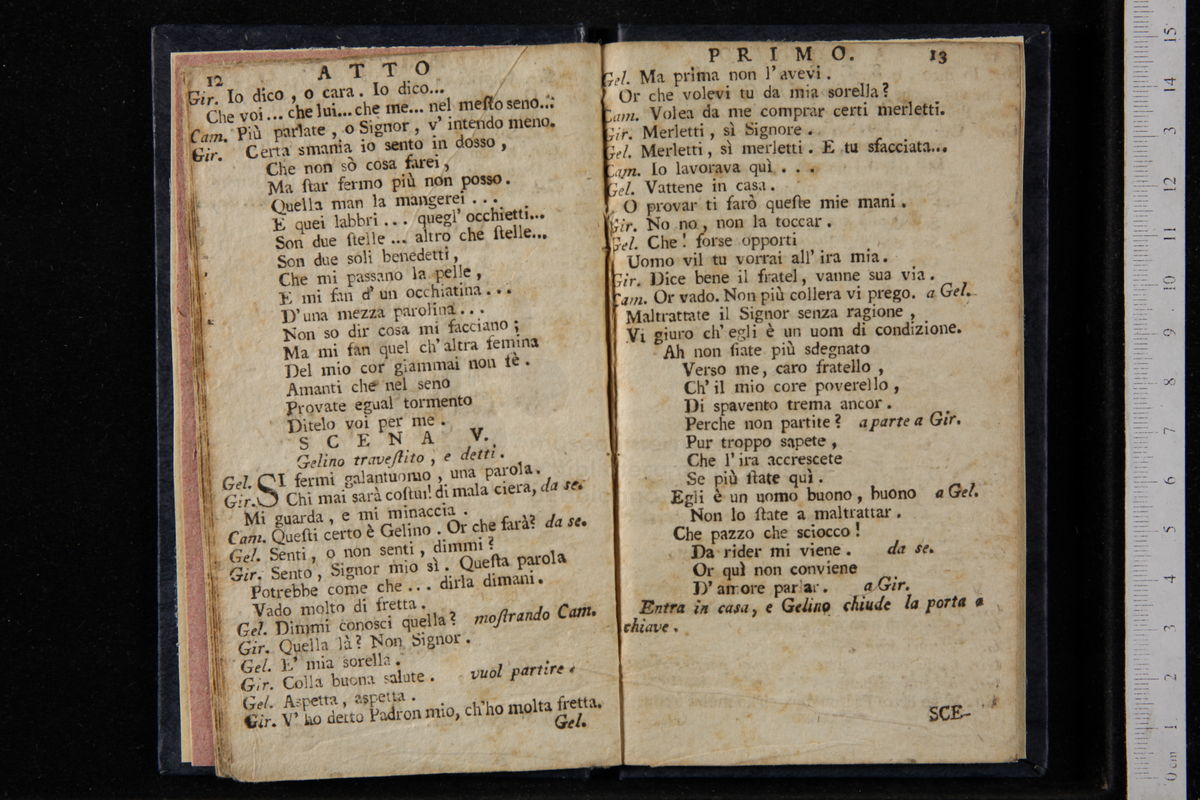 12 ATTO
Gir. Io dico, o cara. Io dico...
Che voi... che lui... che me... nel mesto seno...
Cam. Più parlate, o Signor, v' intendo meno.
Gir. Certa smania io sento in dosso,
Che non sò cosa farei,
Ma star fermo più non posso.
Quella man la mangerei...
E quei labbri... quegl' occhietti...
Son due stelle... altro che stelle...
Son due soli benedetti,
Che mi passano la pelle,
E mi fan d' un occhiatina...
D'una mezza parolina...
Non so dir cosa mi facciano;
Ma mi fan quel ch'altra femina
Del mio cor giammai non fè.
Amanti che nel seno
Provate egual tormento
Ditelo voi per me.
SCENA V.
Gelino travestito, e detti.
Gel. SI fermi galantuomo, una parola.
Gir. Chi mai sarà costui! di mala ciera, da se.
Mi guarda, e mi minaccia.
Cam. Questi certo è Gelino. Or che farà? da se.
Gel. Senti, o non senti, dimmi?
Gir. Sento, Signor mio sì. Questa parola
Potrebbe come che... dirla dimani.
Vado molto di fretta.
Gel. Dimmi conosci quella? mostrando Cam.
Gir. Quella là? Non Signor.
Gel. E' mia sorella.
Gir. Colla buona salute. vuol partire.
Gel. Aspetta, aspetta.
Gir. V' ho detto Padron mio, ch'ho molta fretta.
Gel.
PRIMO. 13
Gel. Ma prima non l'avevi.
Or che volevi tu da mia sorella?
Cam. Volea da me comprar certi merletti.
Gir. Merletti, sì Signore.
Gel. Merletti, sì merletti. E tu sfacciata...
Cam. Io lavorava quì...
Gel. Vattene in casa.
O provar ti farò queste mie mani.
Gir. No no, non la toccar.
Gel. Che! forse opporti
Uomo vil tu vorrai all' ira mia.
Gir. Dice bene il fratel, vanne sua via.
Cam. Or vado. Non più collera vi prego. a Gel.
Maltrattate il Signor senza ragione,
Vi giuro ch'egli è un uom di condizione.
Ah non siate più sdegnato
Verso me, caro fratello,
Ch'il mio core poverello,
Di spavento trema ancor.
Perche non partite? a parte a Gir.
Pur troppo sapete,
Che l'ira accrescete
Se più state quì.
Egli è un uomo buono, buono a Gel.
Non lo state a maltrattar.
Che pazzo che sciocco!
Da rider mi viene. da se.
Or quì non conviene
D'amore parlar. a Gir.
Entra in casa, e Gelino chiude la porta a
chiave.
SCE-
15
14
13
12
11
10
9
8
7
6
5
4
3
2
1
0 cm